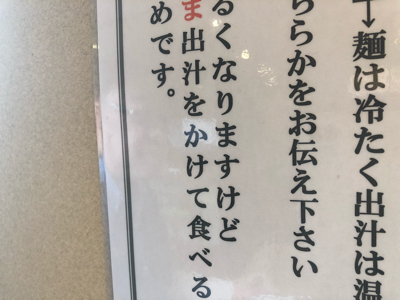 →麺は冷たく出汁は温
ららかをお伝え下さい
るくなりますけど
ま出汁をかけて食べる
めです。